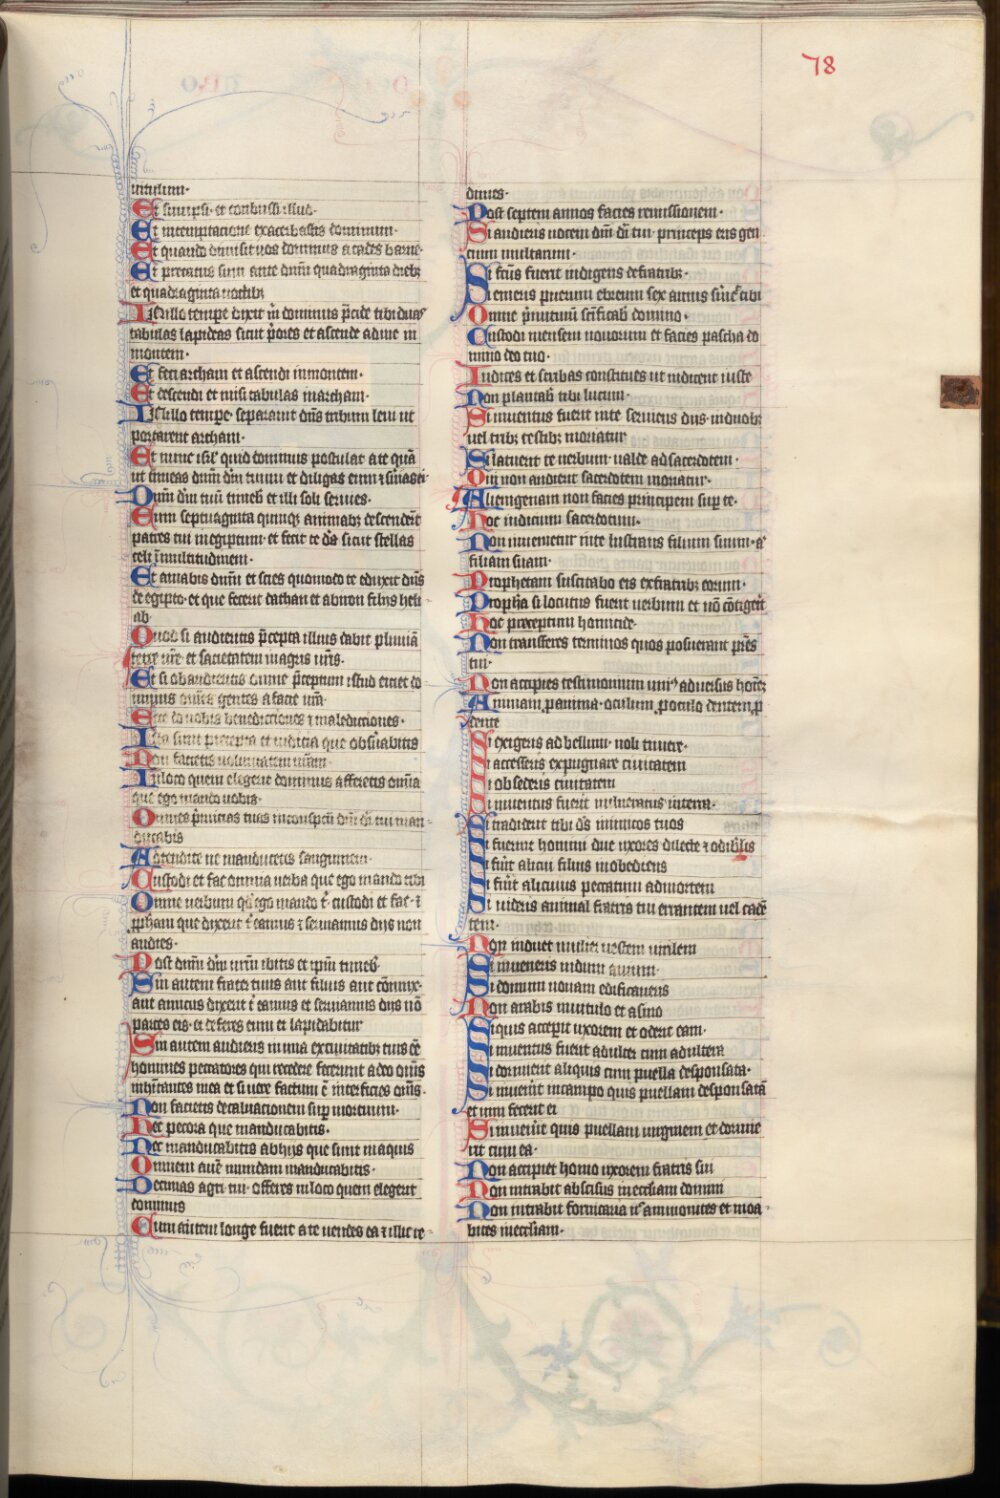 78
uitulum·
Et surrexi· et conbussi illud·
Et in temptatione exacerbastis dominum·
Et quando emisit uos dominus a cades barne·
Et precatus sum ante dnm̄ quadraginta dieb;
et quadraginta noctib;
In illo tempe dixit m̄ dominus p̄cide tibi duas
tabulas lapideas sicut p̄ores et ascende ad me in
montem·
Et feci archam et ascendi in montem·
Et descendi et misi tabulas in archam·
In illo tempe· separauit dn̄s tribum leui ut
portarent archam·
Et nunc isrl̄ quid dominus postulat a te q̄m
ut timeas dnm̄ dm̄ tuum et diligas eum
Dnm̄ dm̄ tuū timeb̄ et illi soli seruies·
Cum septuaginta quinq; animab; descenderūt
patres tui in egiptum· et fecit te ds̄ sicut stellas
celi ī multitudinem·
Et amabis dnm̄ et scies quomodo te eduxit dn̄s
de egipto· et que fecerit dathan et abiron filijs heli
ab·
Quod si audieritis p̄cepta illius dabit pluuiā
terre ur̄e et sacietatem magris ur̄is·
Et si obaudieritis omne p̄ceptum istud eiciet do
minus om̄es gentes a facie ur̄a·
Ecce do uobis benedictiones ⁊ maledictiones·
Ista sunt precepta et iudicia que obs̄uabitis
Non facietis uoluntatem ur̄am·
In loco quem elegerit dominus afferetis om̄ia
que ego mando uobis·
Omnes p̄mitias tuas in conspc̄u dnī dī tui man
ducabis
Adtendite ne manducetis sanguinem·
Custodi et fac omnia uerba que ego mando tibi
Omne uerbum qd̄ ego mando t̄· custodi et fac· ⁊
pp̄ham que dixerit t̄ eamus ⁊ seruiamus dijs non
audies·
Post dnm̄ dm̄ ur̄m ibitis et ip̄m timeb̄·
Sin autem frater tuus aut filius aut
aut amicus dixerit t̄ eamus et seruiamus dijs nō
parces eis· et deferes eum et lapidabitur
Sin autem audieris in una ex ciuitatib; tuis ēē
homines peccatores qui recedere fecerint a deo om̄s
inhītantes in ea et si uere factum ē interficies om̄s·
Non facietis decaluationem sup mortuum·
Nec pecora que manducabitis·
Nec manducabitis ab hijs que sunt in aquis
Omnem auē mundam manducabitis·
Decimas agri tui· offeres in loco quem elegerit
dominus
Cum autem longe fuerit a te uendes ea ⁊ illic re
dimes·
Post septem annos facies remissionem·
Si audieris uocem dnī dī tui· princeps eris gen
tium multarum·
Si frūs fuerit indigens de fratrib;·
Si emeris puerum ebreum sex annis s̄uiet tibi
Omne p̄mitiuū sc̄ificab̄ domino·
Custodi mensem nouorum et facies pascha do
mino deo tuo·
Iudices et scribas constitues ut iudicent iuste
Non plantab̄ tibi lucum·
Si inuentus fuerit in te seruiens dijs· in duob;
uel trib; testib; moriatur
Si latuerit te uerbum· ualde ad sacerdotem·
Qui non audierit sacerdotem moriatur·
Alienigenam non facies principem sup te·
Hoc iudicium sacerdotum·
Non inuenietur in te lustrans filium suum· a
filiam suam·
Prophetam suscitabo eis ex fratrib; eorum·
Proph̄a si locutus fuerit uerbum et nō cōtigerit
Hoc preceptum homicide·
Non transferes terminos quos posuerunt pr̄es
tui·
Non accipies testimonium uniꝰ aduersus hoīe;
Animam p anima· oculum p oculo dentem p
dente
Si exigeris ad bellum· noli timere·
Si accesseris expugnare ciuitatem
Si obsederis ciuitatem
Si inuentus fuerit uulneratus in terra·
Si tradiderit tibi ds̄ inimicos tuos
Si fuerint homini due uxores dilecte ⁊ odibilis
Si fūit alicui filius inobediens
Si fūit alicuius peccatum ad mortem
Si uideris animal fratris tui errantem uel cadē
tem·
Non induet mulier uestem uirilem
Si inueneris nidum auium·
Si domum nouam edificaueris
Non arabis in uitulo et asino
Si quis acceperit uxorem et oderit eam·
Si inuentus fuerit adulter cum adultera
Si dormierit aliquis cum puella desponsata·
Si inuen̄it in campo quis puellam desponsatā
et uim fecerit ei
Si inuen̄it quis puellam uirginem et dormie
rit cum ea·
Non accipiet homo uxorem fratris sui
Non intrabit abscisus in ecclesiam domini
Non intrabit fornicaria n̄ ammonites et moa
bites in ecclesiam·